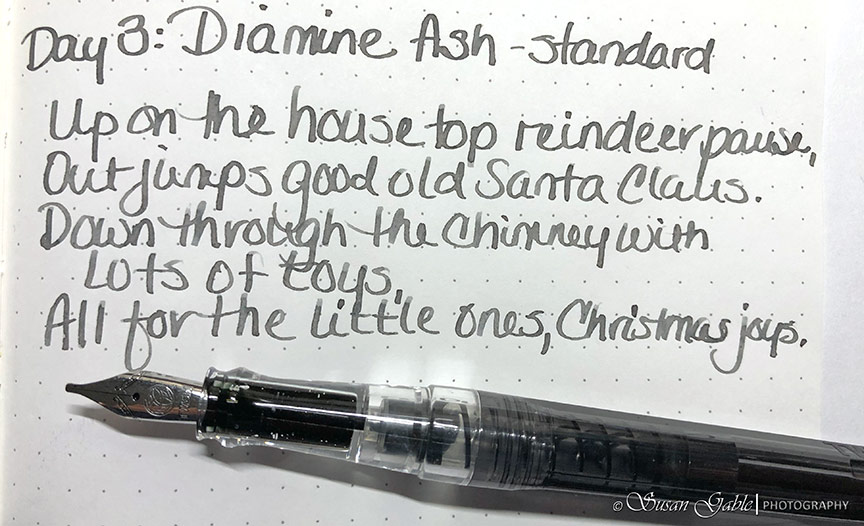 Day 3: Diamine Ash - standard
Up on the house top reindeer pause,
Out jumps good old Santa Claus.
Down through the chimney with
Lots of toys,
All for the little ones, Christmas joys.
© Susan Gable | PHOTOGRAPHY